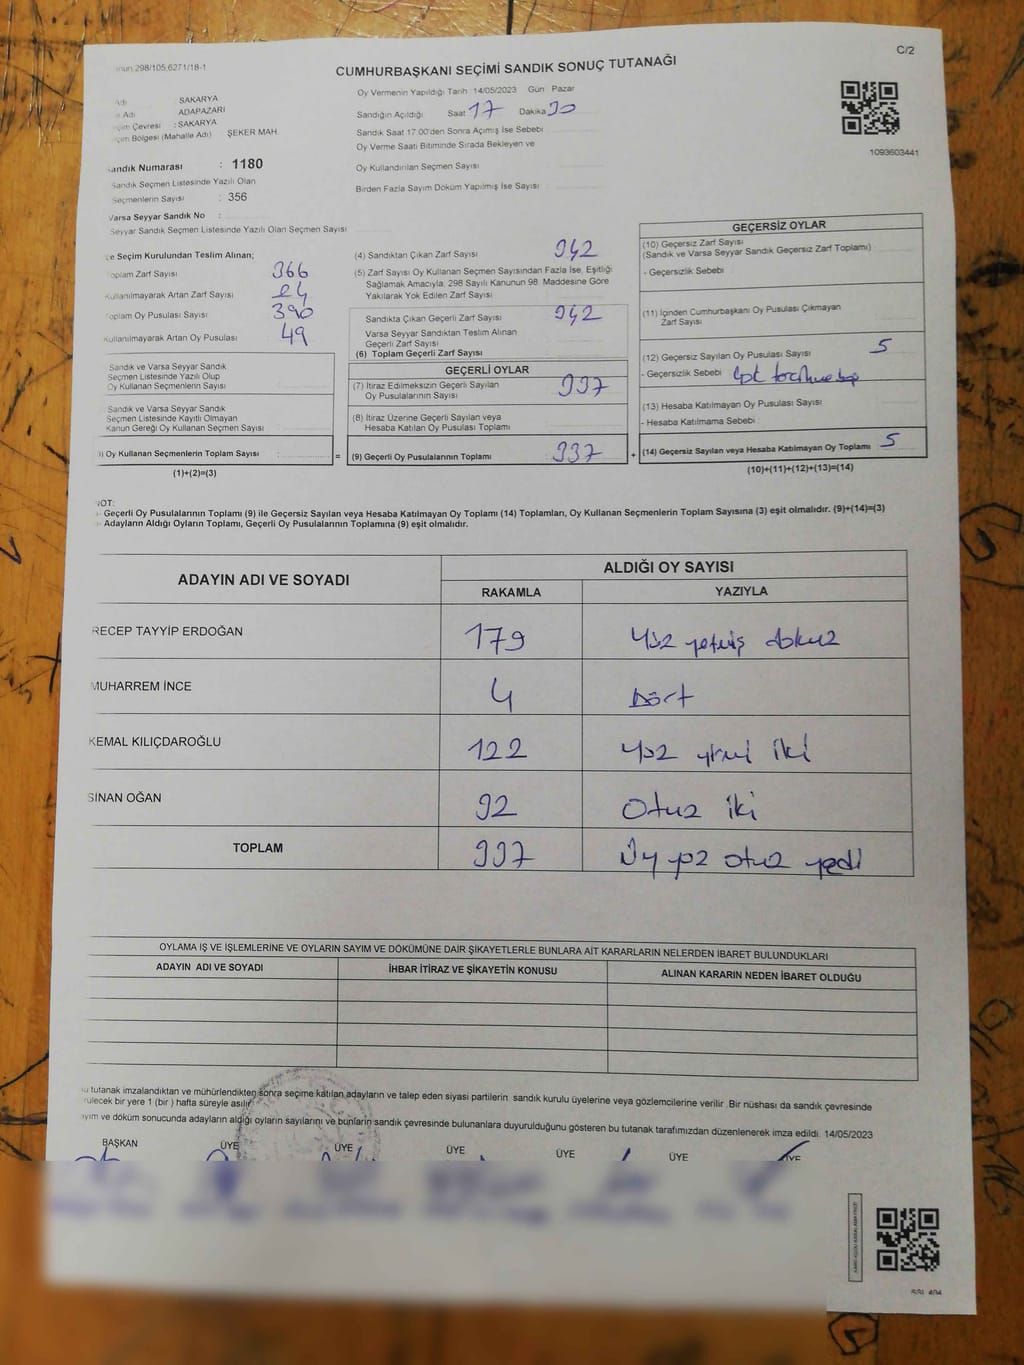 C/2
CUMHURBAŞKANI SEÇİMİ SANDIK SONUÇ TUTANAĞI
298/105,6271/18-1
Oy Vermenin Yapıldığı Tarih 14/05/2023 Gün Pazar
Adı SAKARYA
Adı ADAPAZARI
Çevresi : SAKARYA
Bölgesi (Mahalle Adı) ŞEKER MAH.
Sandığın Açıldığı Saat 17 Dakika 30
Sandık Saat 17.00'den Sonra Açılmış İse Sebebi
Oy Verme Saati Bitiminde Sırada Bekleyen ve
Oy Kullandırılan Seçmen Sayısı
Birden Fazla Sayım Döküm Yapılmış İse Sayısı
1093603441
Sandık Numarası : 1180
Sandık Seçmen Listesinde Yazılı Olan
Seçmenlerin Sayısı : 356
Varsa Seyyar Sandık No :
Seyyar Sandık Seçmen Listesinde Yazılı Olan Seçmen Sayısı
İlçe Seçim Kurulundan Teslim Alınan;
Toplam Zarf Sayısı 366
Kullanılmayarak Artan Zarf Sayısı 24
Toplam Oy Pusulası Sayısı 390
Kullanılmayarak Artan Oy Pusulası 49
Sandık ve Varsa Seyyar Sandık
Seçmen Listesinde Yazılı Olup
Oy Kullanan Seçmenlerin Sayısı
Sandık ve Varsa Seyyar Sandık
Seçmen Listesinde Kayıtlı Olmayan
Kanun Gereği Oy Kullanan Seçmen Sayısı
Oy Kullanan Seçmenlerin Toplam Sayısı :
=
(1)+(2)=(3)
(4) Sandıktan Çıkan Zarf Sayısı 342
(5) Zarf Sayısı Oy Kullanan Seçmen Sayısından Fazla İse, Eşitliği
Sağlamak Amacıyla, 298 Sayılı Kanunun 98. Maddesine Göre
Yakılarak Yok Edilen Zarf Sayısı
Sandıkta Çıkan Geçerli Zarf Sayısı 342
Varsa Seyyar Sandıktan Teslim Alınan
Geçerli Zarf Sayısı
(6) Toplam Geçerli Zarf Sayısı
GEÇERLİ OYLAR
(7) İtiraz Edilmeksizin Geçerli Sayılan
Oy Pusulalarının Sayısı 337
(8) İtiraz Üzerine Geçerli Sayılan veya
Hesaba Katılan Oy Pusulası Toplamı
(9) Geçerli Oy Pusulalarının Toplamı 337
+
GEÇERSİZ OYLAR
(10) Geçersiz Zarf Sayısı
(Sandık ve Varsa Seyyar Sandık Geçersiz Zarf Toplamı)
- Geçersizlik Sebebi
(11) İçinden Cumhurbaşkanı Oy Pusulası Çıkmayan
Zarf Sayısı
(12) Geçersiz Sayılan Oy Pusulası Sayısı 5
- Geçersizlik Sebebi
(13) Hesaba Katılmayan Oy Pusulası Sayısı
- Hesaba Katılmama Sebebi
(14) Geçersiz Sayılan veya Hesaba Katılmayan Oy Toplamı 5
(10)+(11)+(12)+(13)=(14)
NOT:
- Geçerli Oy Pusulalarının Toplamı (9) ile Geçersiz Sayılan veya Hesaba Katılmayan Oy Toplamı (14) Toplamları, Oy Kullanan Seçmenlerin Toplam Sayısına (3) eşit olmalıdır. (9)+(14)=(3)
- Adayların Aldığı Oyların Toplamı, Geçerli Oy Pusulalarının Toplamına (9) eşit olmalıdır.
ADAYIN ADI VE SOYADI
ALDIĞI OY SAYISI
RAKAMLA YAZIYLA
RECEP TAYYİP ERDOĞAN 179 Yüz yetmiş dokuz
MUHARREM İNCE 4 Dört
KEMAL KILIÇDAROĞLU 122 Yüz yirmi iki
SİNAN OĞAN 32 Otuz iki
TOPLAM 337 Üç yüz otuz yedi
OYLAMA İŞ VE İŞLEMLERİNE VE OYLARIN SAYIM VE DÖKÜMÜNE DAİR ŞİKAYETLERLE BUNLARA AİT KARARLARIN NELERDEN İBARET BULUNDUKLARI
ADAYIN ADI VE SOYADI İHBAR İTİRAZ VE ŞİKAYETİN KONUSU ALINAN KARARIN NEDEN İBARET OLDUĞU
tutanak imzalandıktan ve mühürlendikten sonra seçime katılan adayların ve talep eden siyasi partilerin sandık kurulu üyelerine veya gözlemcilerine verilir. Bir nüshası da sandık çevresinde
bir yere 1 (bir) hafta süreyle asılır.
Sayım ve döküm sonucunda adayların aldığı oyların sayılarını ve bunların sandık çevresinde bulunanlara duyurulduğunu gösteren bu tutanak tarafımızdan düzenlenerek imza edildi. 14/05/2023
BAŞKAN ÜYE ÜYE ÜYE ÜYE ÜYE ÜYE